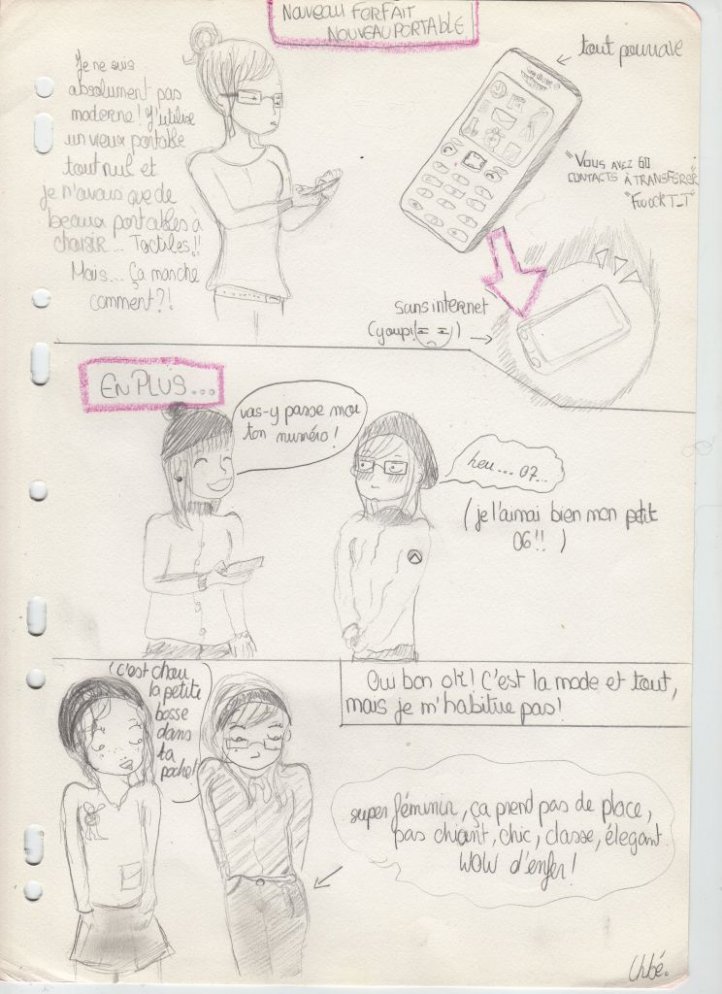 NOUVEAU FORFAIT
NOUVEAU PORTABLE
Je ne suis
absolument pas
moderne ! J'utilise
un vieux portable
tout nul et
je n'avais que de
beaux portables à
choisir... Tactiles !!
Mais... Ça marche
comment ?!
tout pourrave
"Vous avez 60
contacts à transférer"
"Fuuck T_T"
sans internet
(youpi !)
EN PLUS...
vas-y passe moi
ton numéro !
heu... 07...
(je l'aimai bien mon petit
06 !! )
c'est chou
la petite
bosse
dans
ta
poche !
Oui bon ok ! C'est la mode et tout,
mais je m'habitue pas !
super féminin, ça prend pas de place,
pas chiant, chic, classe, élegant
WOW d'enfer !
Chbé.